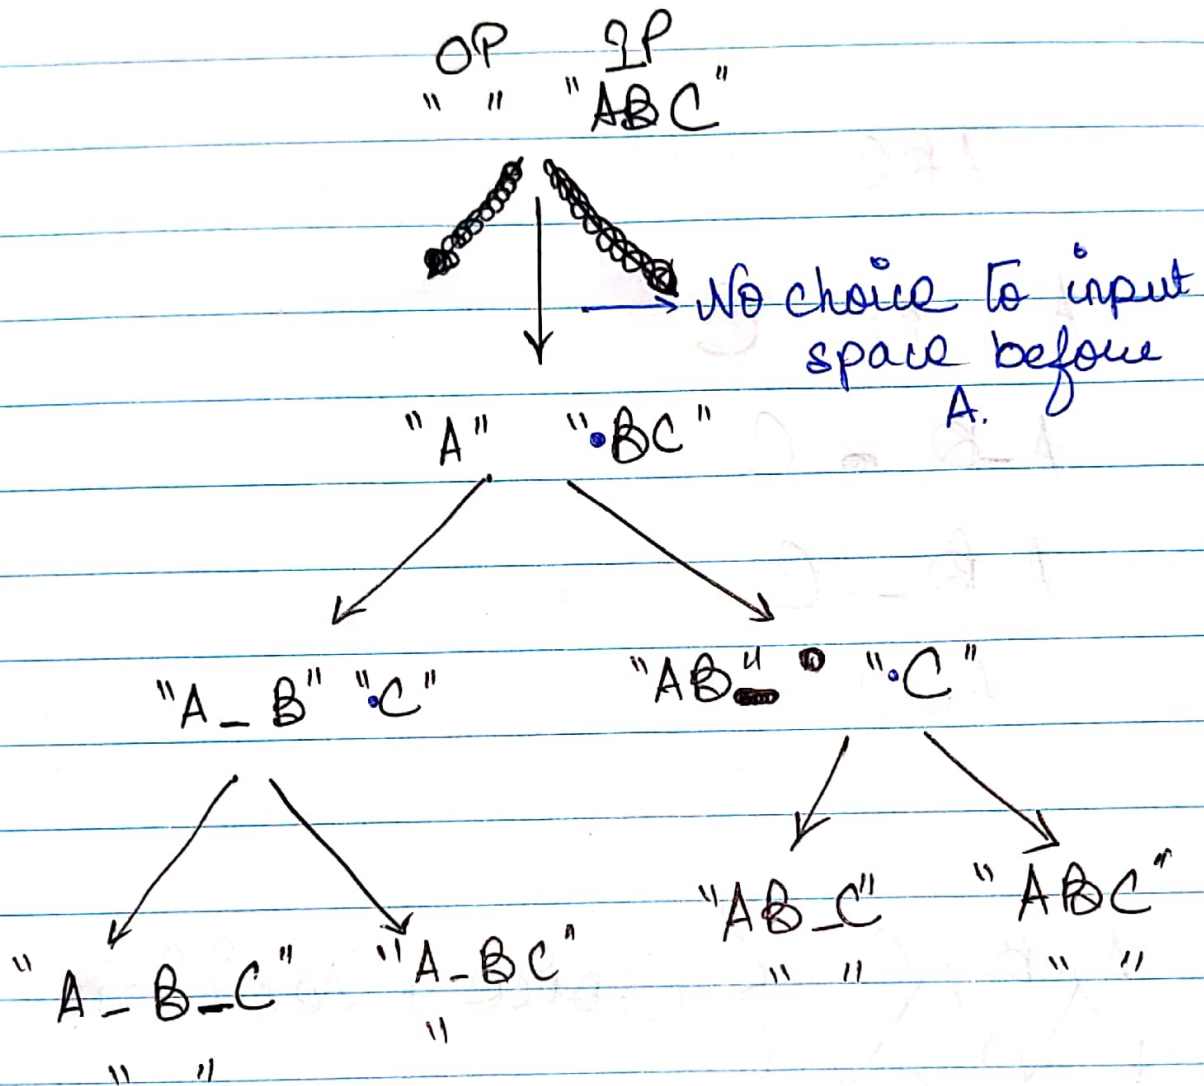 OP IP
" " "ABC"
No choice to input
space before
A.
"A" "BC"
"A_B" "C" "AB" "C"
"AB_C" "ABC"
"A_B_C" "A_BC"
" " " "
"
" "